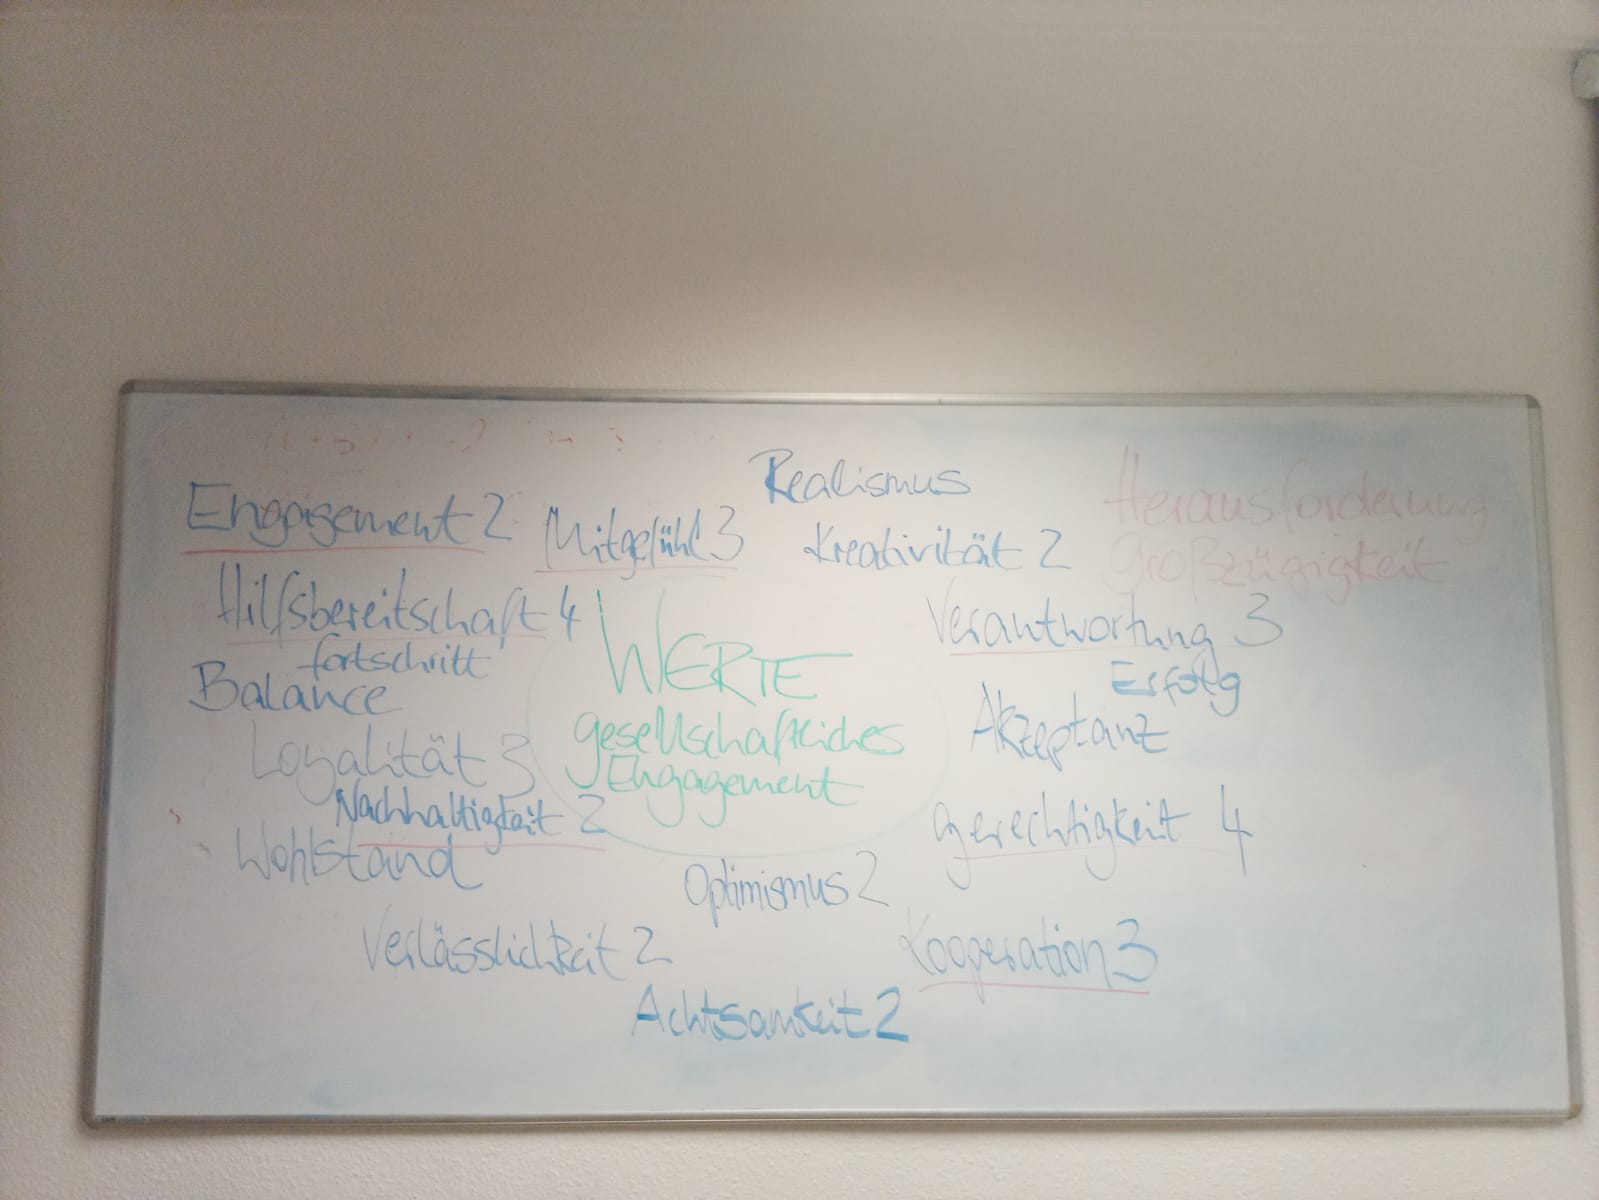 Realismus
Herausforderung
Engagement 2
Mitgefühl 3
Kreativität 2
Großzügigkeit
Hilfsbereitschaft 4
Verantwortung 3
fortschritt
WERTE
Erfolg
Balance
Akzeptanz
gesellschaftliches
Loyalität 3
Engagement
Nachhaltigkeit 2
gerechtigkeit 4
Wohlstand
Optimismus 2
Verlässlichkeit 2
Kooperation 3
Achtsamkeit 2